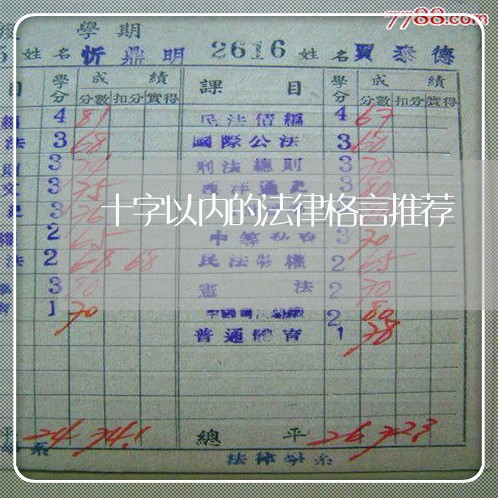 7788.com
學期
姓名 忻鼎明 2616 姓名 賈泰德
目 學分 成績 課目 學分 成績
分數 扣分 實得 分數 扣分 實得
4 81 民法債編 4 67
法 3 68 國際公法 3 60
3 刑法總則 3 70
3 75 西洋通史 3
十字以内的法律格言推荐
2 65 3 70
法 2 68 68 民法物權 2 65
3 憲法 2 70
1 70 2 80
普通體育 1 78
平 24 74.1 總平 26 72.3
系 法律學系